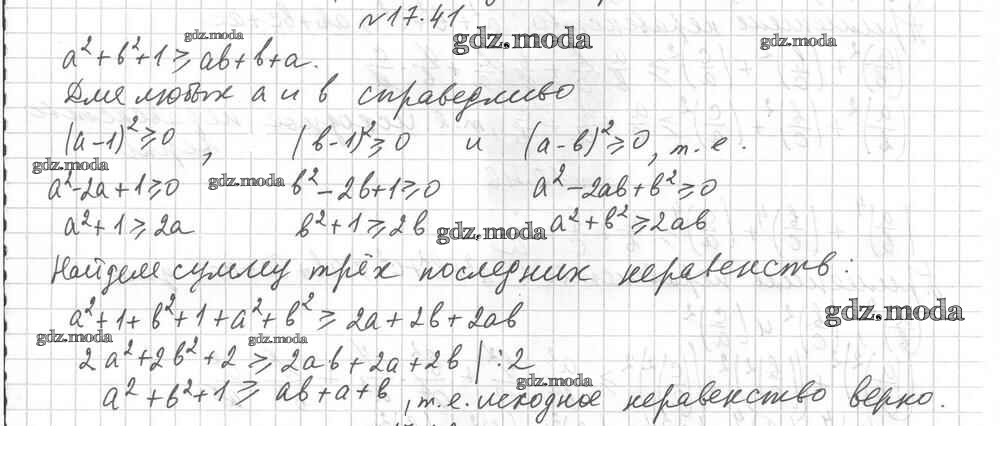 №17.41
gdz.moda
gdz.moda gdz.moda
a²+b²+1 ⩾ ab+b+a.
Для любых a и b справедливо
(a-1)²⩾0, (b-1)²⩾0 и (a-b)²⩾0, т.е.
gdz.moda gdz.moda
a²-2a+1⩾0 b²-2b+1⩾0 a²-2ab+b²⩾0
a²+1⩾2a b²+1⩾2b a²+b²⩾2ab
gdz.moda gdz.moda
Найдем сумму трёх последних неравенств:
a²+1+b²+1+a²+b² ⩾ 2a+2b+2ab
gdz.moda
gdz.moda gdz.moda
2a²+2b²+2 ⩾ 2ab+2a+2b |:2
gdz.moda
a²+b²+1⩾ ab+a+b, т.е. исходное неравенство верно.